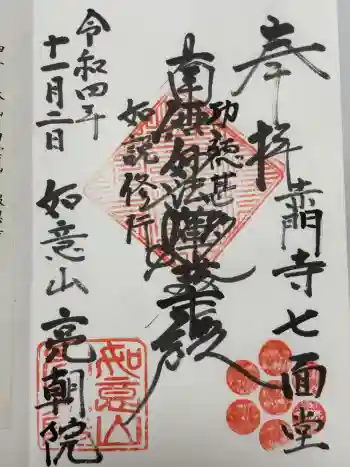 奉拝
七面堂
南無妙法蓮華経
功徳甚多
如説修行
令和四年
十一月二日
如意山亮朝院
如意山